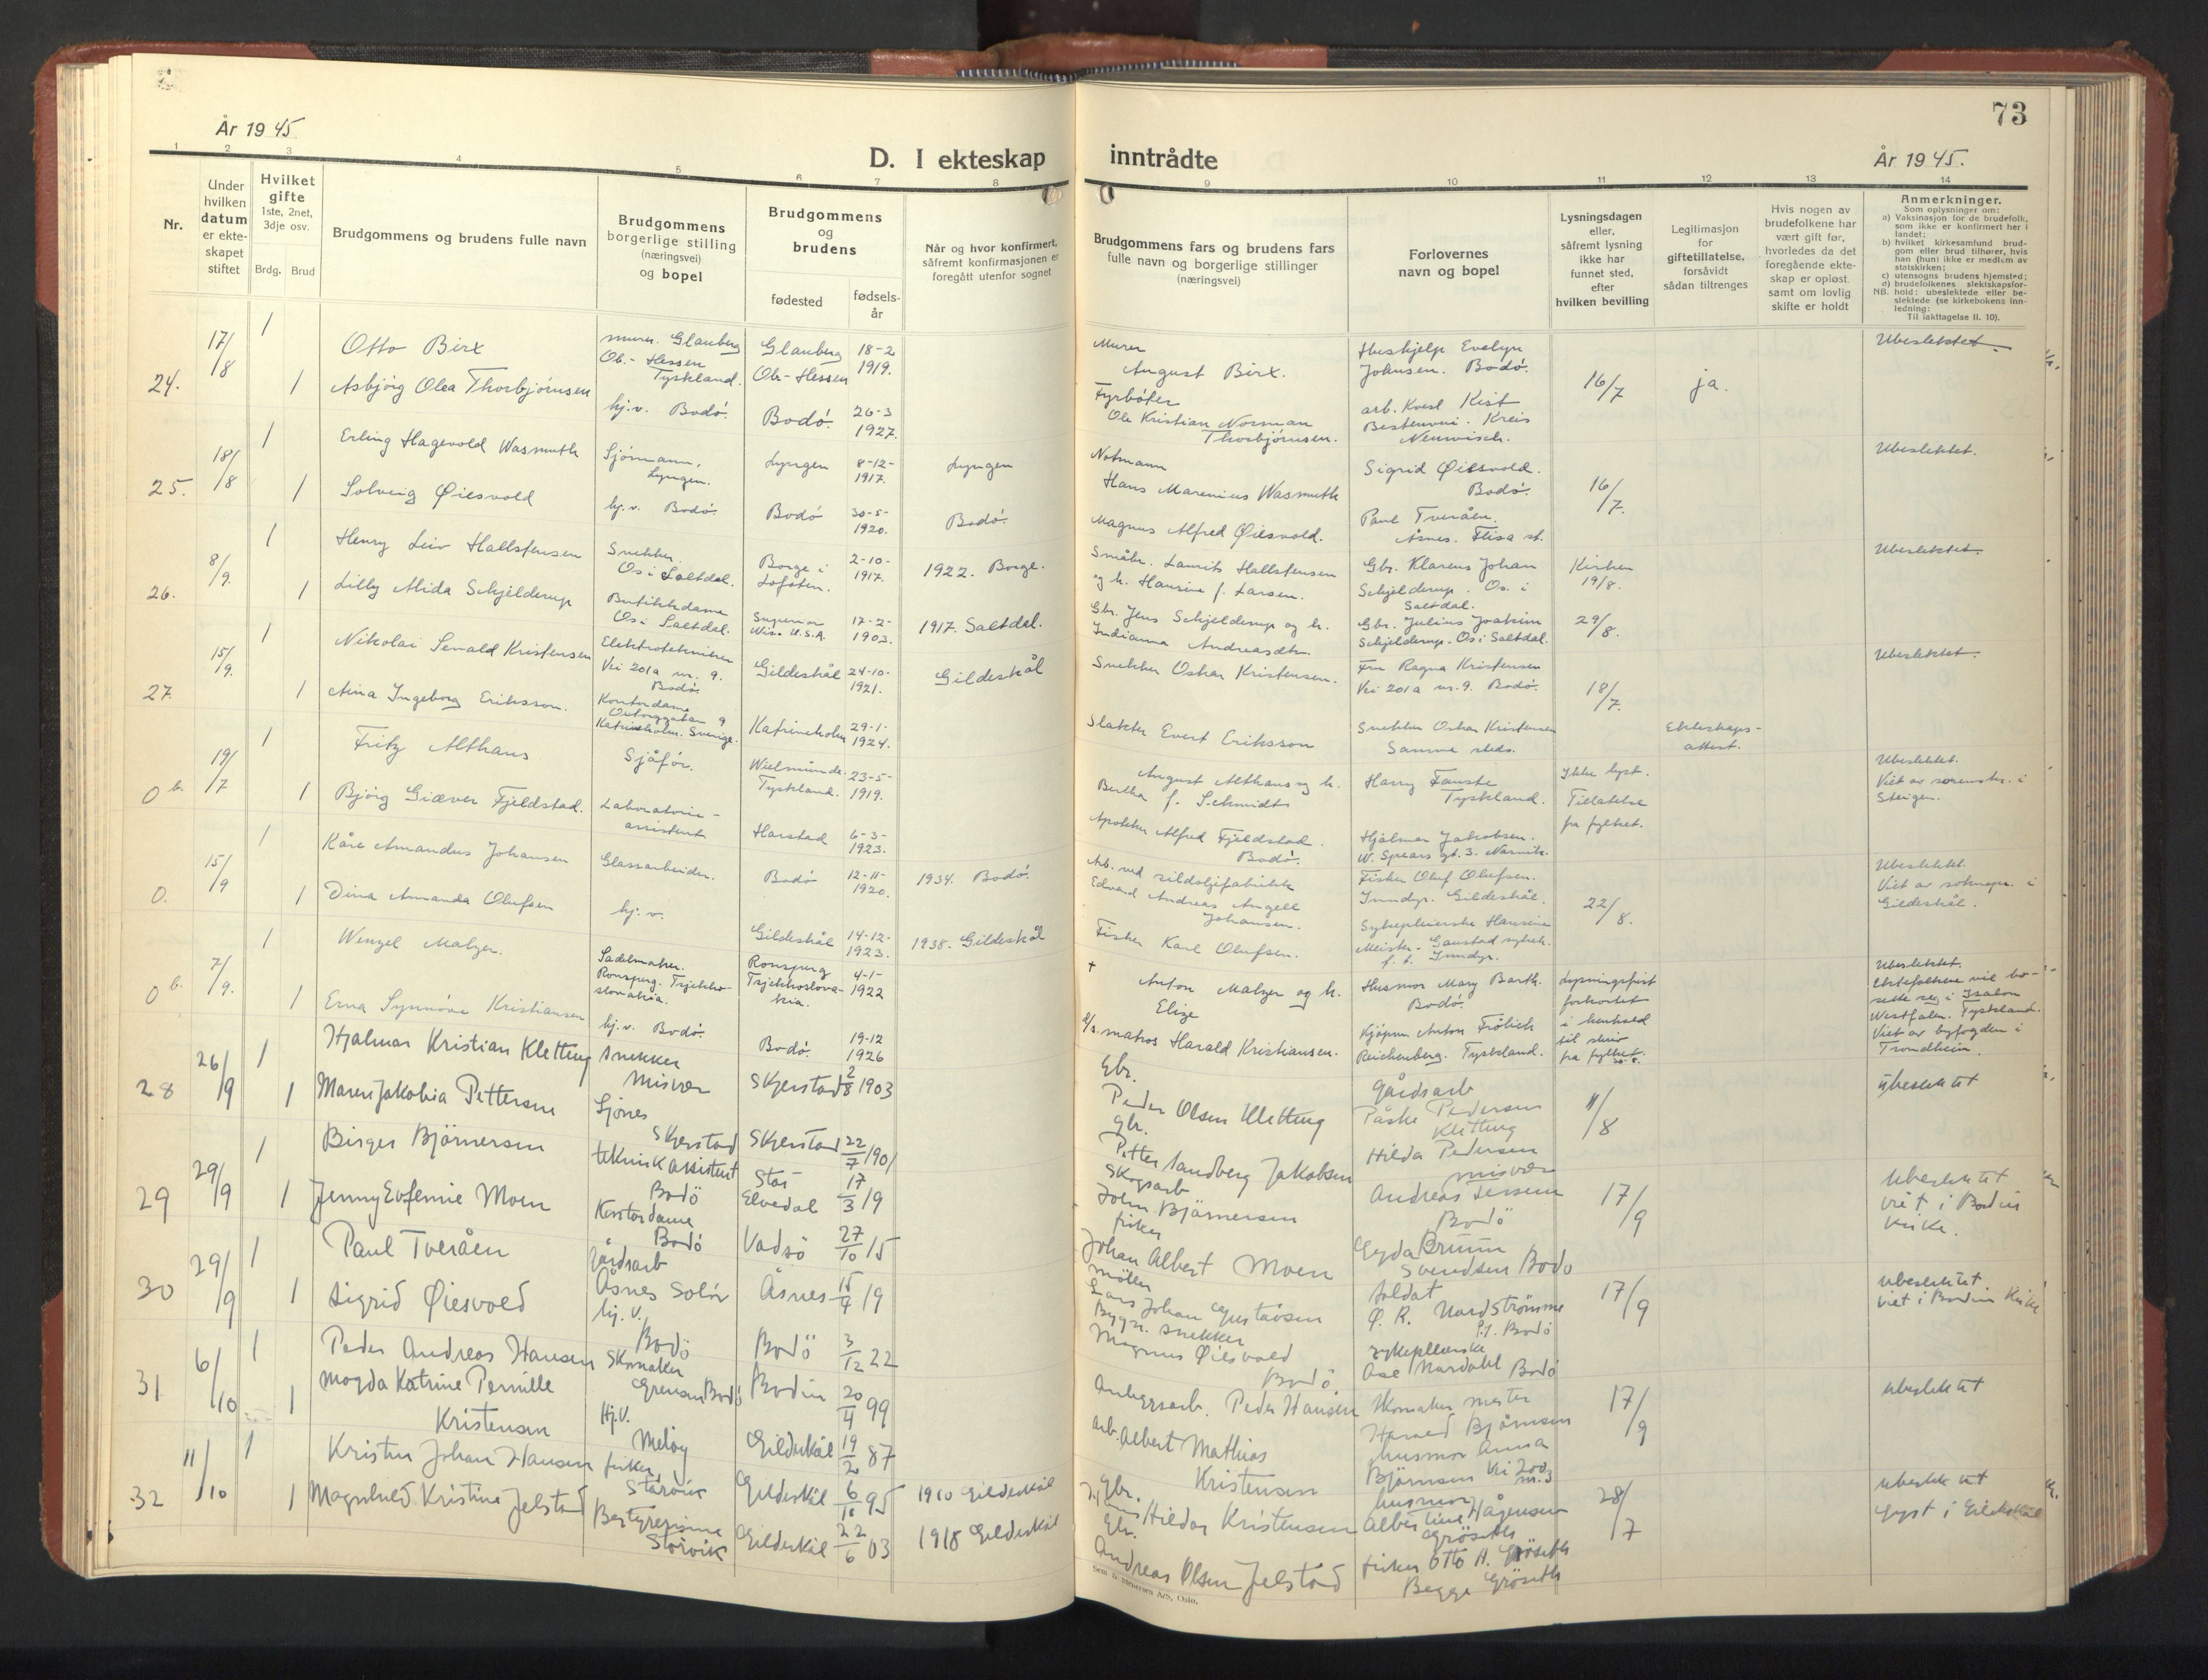 År 1945
D. I ekteskap
1 2 3 4 5 6 7 8
Nr.
Under hvilken datum er ekteskapet stiftet
Hvilket gifte
1ste, 2net, 3dje osv.
Brdg. Brud
Brudgommens og brudens fulle navn
Brudgommens borgerlige stilling (næringsvei) og bopel
Brudgommens og brudens
fødested
fødselsår
Når og hvor konfirmert, såfremt konfirmasjonen er foregått utenfor sognet
24. 17/8 1 Otto Birx murer. Glauberg Ob.-Hessen Tyskland. Glauberg Ob-Hessen 18-2 1919.
1 Asbjörg Olea Thorbjörnsen hj.v. Bodö. Bodö. 26-3 1927.
25. 18/8 1 Erling Hagevold Wasmuth Sjömann, Lyngen. Lyngen 8-12-1917. Lyngen
1 Solveig Øiesvold hj.v. Bodö. Bodö 30-5-1920. Bodö.
26. 8/9. 1 Henry Leiv Hallstensen Snekker. Os i Saltdal. Borge i Lofoten. 2-10-1917. 1922. Borge.
1 Lilly Alida Schjelderup Butikkdame Os i Saltdal. Superior Wis. U.S.A. 17-2-1903. 1917. Saltdal.
27. 15/9. 1 Nikolai Senald Kristensen Elektrotekniker Vei 201a nr. 9. Bodö. Gildeskål 24-10-1921. Gildeskål
1 Aina Ingeborg Eriksson. Kontordame 9 Katrineholm. Sverige. Katrineholm 29-1-1924.
0 b. 19/7 1 Fritz Althaus Sjåför. Tyskland. 23-5-1919.
1 Björg Giæver Fjeldstad. Laboratorie-assistent Harstad 6-3-1923.
0. 15/9 1 Kåre Amandus Johansen Glassarbeider. Bodö 12-11-1920. 1934. Bodö.
1 Dina Amanda Olufsen hj.v. Gildeskål 14-12-1923. 1938. Gildeskål
0 b. 7/9. 1 Wenzel Malzer. Sadelmaker. Ronsperg. Tsjekkoslovakia. Ronsperg Tsjekkoslovakia. 4-1-1922
1 Erna Synnöve Kristiansen hj.v. Bodö. Bodö. 19-12 1926
28 26/9 1 Hjalmar Kristian Kletting snekker Misvær Skjerstad 2/8 1903
1 Maren Jakobia Pettersen Ljönes Skjerstad Skjerstad 22/7 1901
29 29/9 1 Birger Björnersen teknisk assistent Bodö Stor Elvedal 17/3 19
1 Jenny Eufemie Moen Kontordame Bodö Vadsö 27/10 15
30 29/9 1 Paul Tveråen gårdsarb Åsnes Solör Åsnes 15/4 19
1 Sigrid Øiesvold hj.v. Bodö Bodö 3/12 22
31 6/10 1 Peder Andreas Hansen Skomaker Grensen Bodö Bodin 20/4 99
1 Magda Katrine Pernille Kristensen Hj.V. Meløy Gildeskål 19/2 87
32 11/10 1 Kristen Johan Hansen fisker Storvik Gildeskål 6/10 95 1910 Gildeskål
1 Magnhild Kristine Jelstad Bestyrerinne Storvik Gildeskål 22/6 03 1918 Gildeskål
73
inntrådte
År 1945.
9 10 11 12 13 14
Brudgommens fars og brudens fars fulle navn og borgerlige stillinger (næringsvei)
Forlovernes navn og bopel
Lysningsdagen eller, såfremt lysning ikke har funnet sted, efter hvilken bevilling
Legitimasjon for giftetillatelse, forsåvidt sådan tiltrenges
Hvis nogen av brudefolkene har vært gift før, hvorledes da det foregående ekteskap er opløst, samt om lovlig skifte er holdt
Anmerkninger.
Som oplysninger om:
a) Vaksinasjon for de brudefolk, som ikke er konfirmert her i landet;
b) hvilket kirkesamfund brudgom eller brud tilhører, hvis han (hun) ikke er medlem av statskirken;
c) utensogns brudens hjemsted;
d) brudefolkenes slektskapsforhold: ubeslektede eller beslektede (se kirkebokens innledning:
NB.
Til iakttagelse II. 10).
Murer August Birx. Hushjelp Evelyn Johnsen. Bodö. 16/7 ja. Ubeslektet.
Fyrböter Ole Kristian Norman Thorbjörnsen. arb. Kreis
Notmann Hans Marenius Wasmuth Sigrid Øiesvold. Bodö. 16/7. Ubeslektet.
Magnus Alfred Øiesvold. Paul Tveråen. Åsnes. Flisa st.
Småbr. Laurits Hallstensen og h. Hansine f. Larsen. Gbr. Klarens Johan Schjelderup. Os. i Saltdal. Kirken 19/8. Ubeslektet.
Gbr. Jens Schjelderup og h. Indianna Andreasdtr. Gbr. Julius Joakim Schjelderup. Os i Saltdal. 29/8.
Snekker Oskar Kristensen. Fru Ragna Kristensen Vei 201a nr. 9. Bodö. 18/7. Ubeslektet.
Slakter Evert Eriksson Snekker Oskar Kristensen Samme steds. Ekteskaps-attest.
August Althaus og h. Bertha f. Schmidts Harry Fauske Tyskland. Ikke lyst. Tillatelse fra fylket. Ubeslektet. Viet av sorenskr. i Steigen.
Apoteker Alfred Fjeldstad. Bodö. Hjalmar Jakobsen. gt. 3. Narvik.
Arb. ved sildoljefabrikk Edvard Andreas Angell Johansen. Fisker Oluf Olufsen. Inndyr. Gildeskål. 22/8. Ubeslektet. Viet av sokneprr. i Gildeskål.
Fisker Karl Olufsen. Sykepleierske Hansine Meister - Gaustad sykeh. Inndyr.
+ Anton Malzer og h. Elize Husmor Mary Barth. Bodö. Lysningsfrist forkortet i henhold til skriv fra fylket. Ubeslektet. Ektefolkene vil bosette seg i Westfalen. Tyskland. Viet av byfogden i Trondheim.
matros Harald Kristiansen. Kjöpm. Anton Frölich Reichenberg. Tyskland.
Gbr. Peder Olsen Kletting Gårdsarb Påske Pedersen Kletting 11/8 Ubeslektet
Gbr. Petter Sandberg Jakobsen Hilda Pedersen Misvær
Skogsarb John Björnersen Andreas Bodö 17/9 Ubeslektet viet i Bodin kirke.
fisker Johan Albert Moen Gyda Bruun Svendsen Bodö
möller Lars Johan Gustavsen Soldat Ø. R. Nordströmme Bodö 17/9 ubeslektet. viet i Bodin kirke
Bygn. snekker Magnus Øiesvold Bodö sykepleierske Ase Nordahl Bodö
Anleggsarb. Peder Hansen Skomaker mester Harald Björnsen 17/9 ubeslektet
arb. Albert Mathias Kristensen husmor Anna Björnsen Vei 200 nr. 3
Gbr. Hildor Kristensen husmor Albertine Hågensen Gröseth 28/7 ubeslektet Lyst i Gildeskål
Gbr. Andreas Olsen Jelstad fisker Otto H. Gröseth Begge Gröseth
Sem & Stenersen A/S, Oslo.